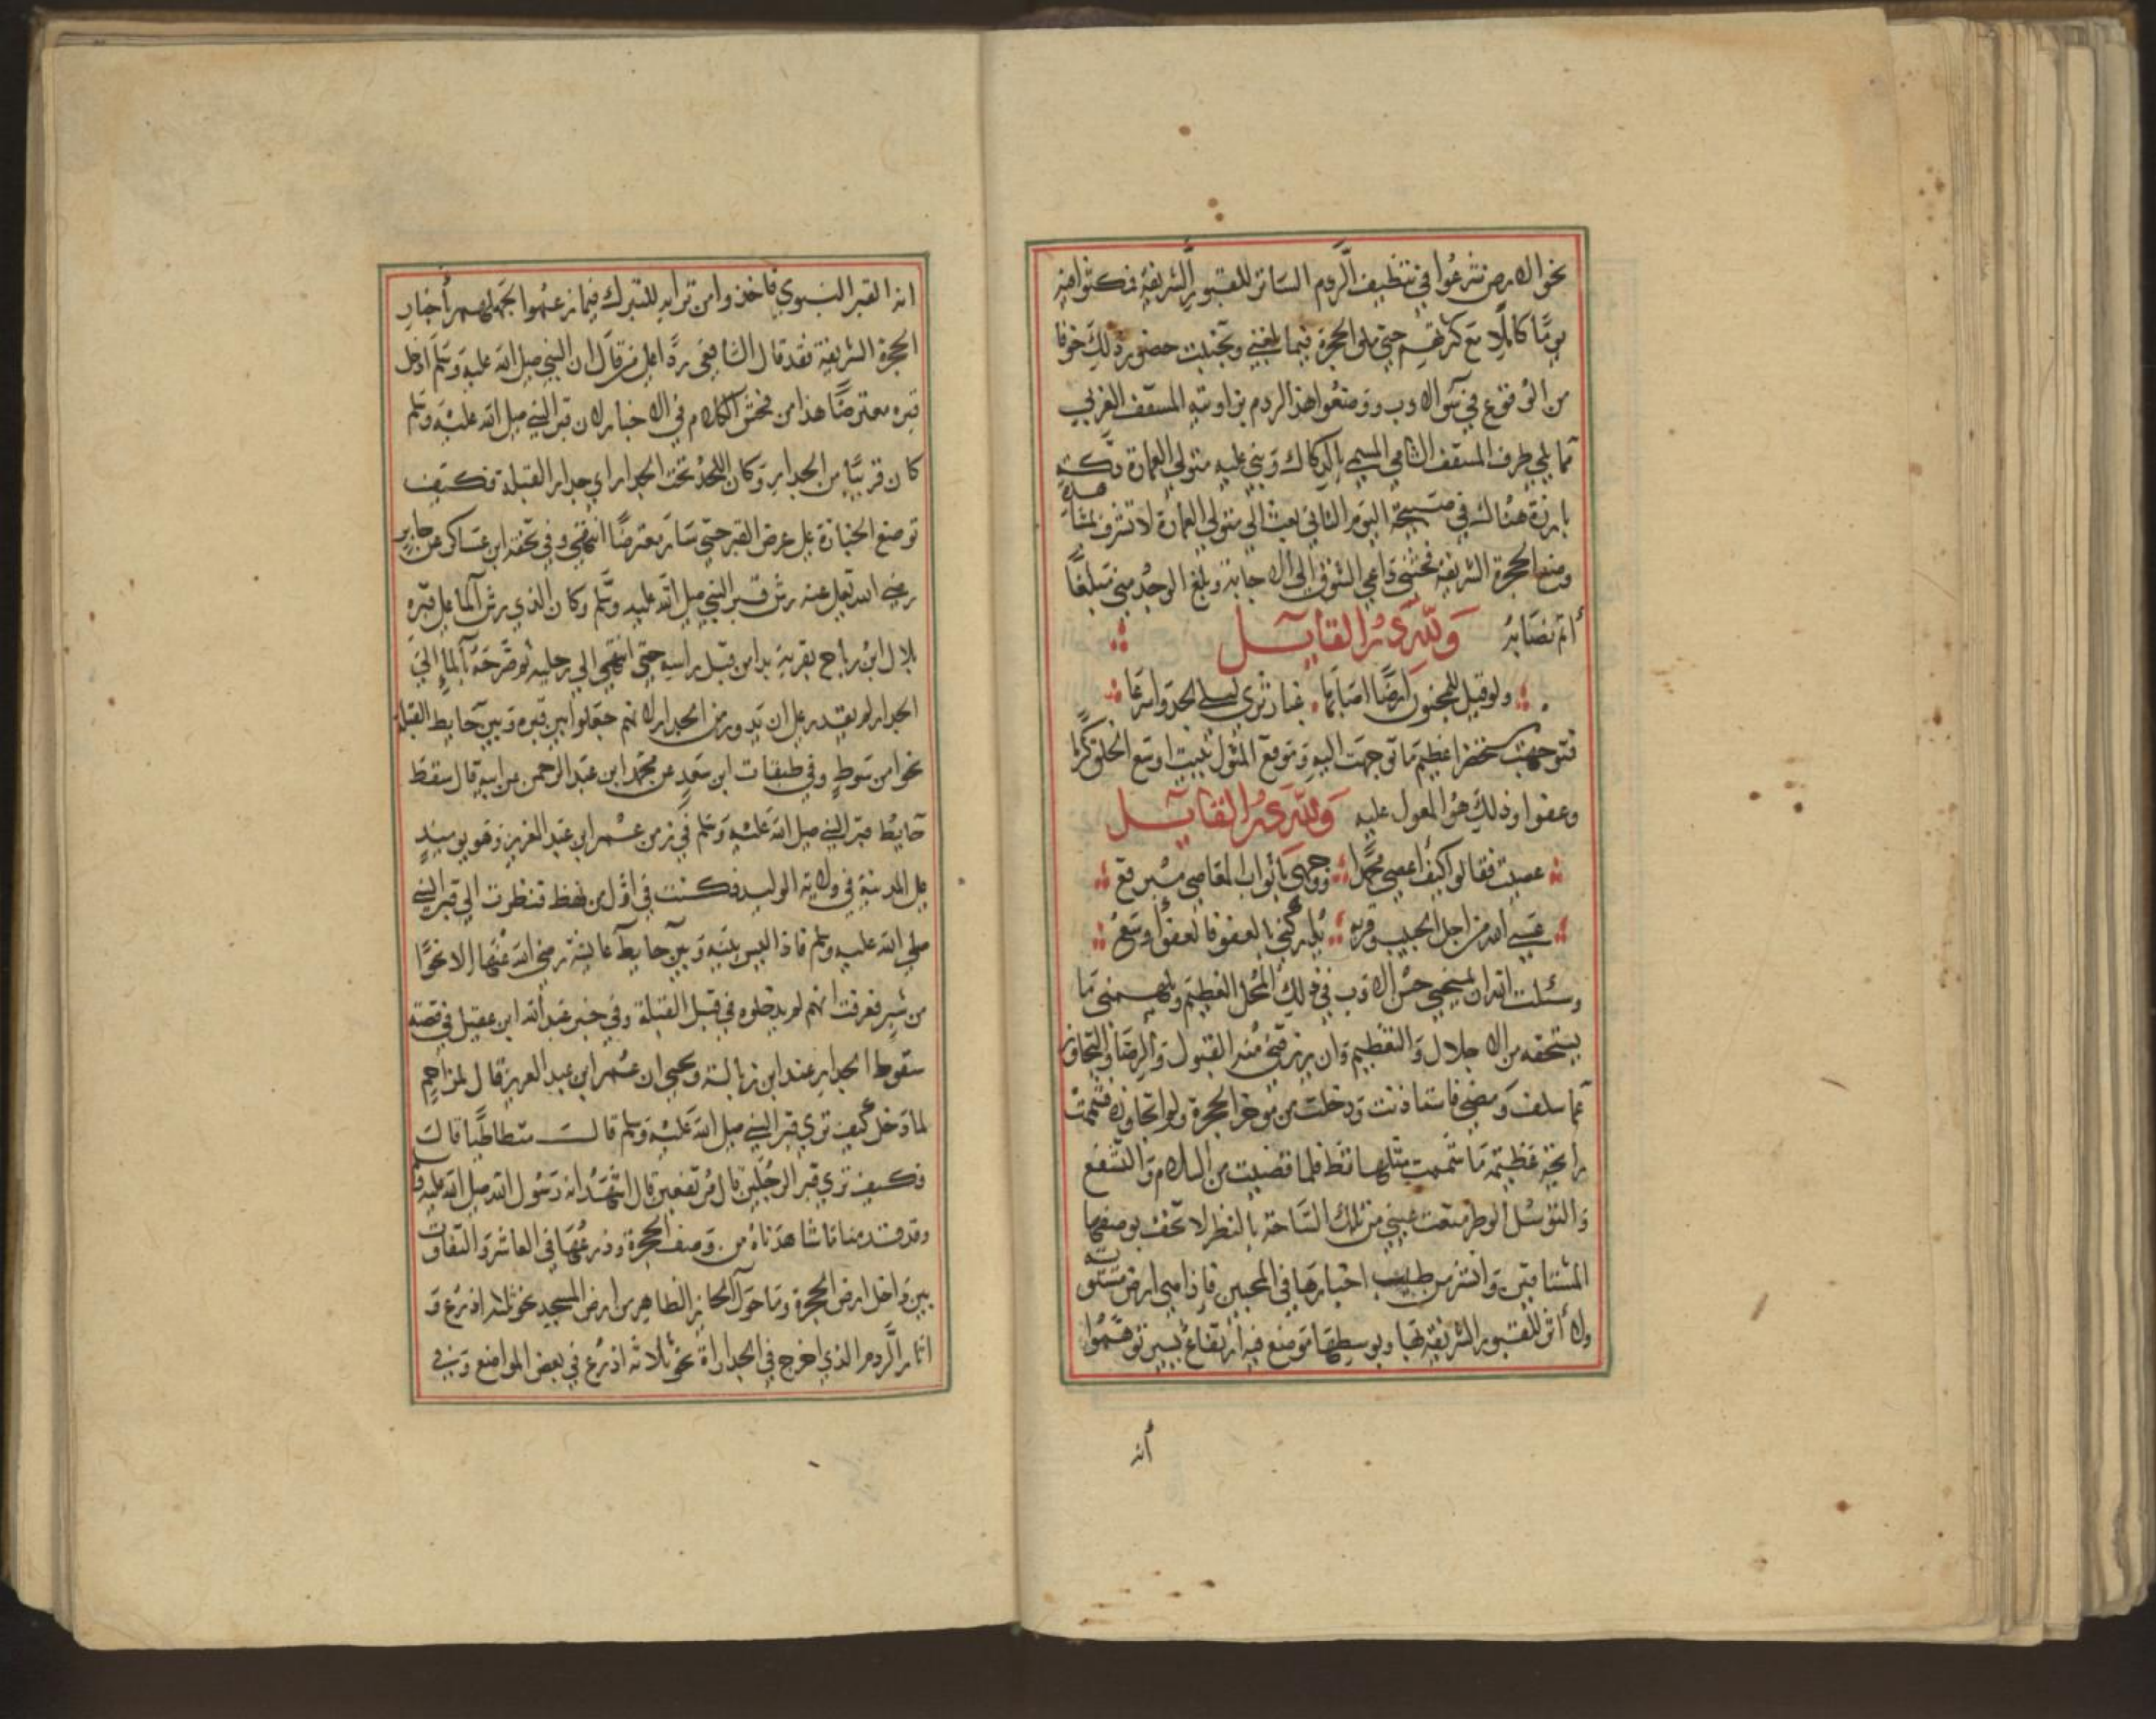 نحو الارض شرعوا في تنظيف الردم الساتر للقبور الشريفة فمكثوا فيه
يومًا كاملًا مع كثرتهم حتى ملوا الحجرة فيما بلغني وتجنبت حضور ذلك خوفا
من الوقوع في سوء الادب ووضعوا هذا الردم بزاوية المسقف الغربي
مما يلي طرف المسقف الشامي المسمى بالدكاك وبنى عليه متولي العمارة دكة
بارزة هناك في صبيحة اليوم الثاني بعث الي متولي العمارة لاتشرف بمشاهدة
وضع الحجرة الشريفة فحثني داعي الشوق الى الاجابة وبلغ الوجد مني مبلغًا
أتم نصابه ولله در القايل
ولو قيل للمجنون ارضًا اصابها غبار ثرى ليلى لجد واسرعا
فتوجهت مستحضرا عظيم ما توجهت اليه وموقع المثول ببيت اوسع الخلق كرمًا
وعفوا وذلك هو المعول عليه ولله در القايل
عصيت فقالوا كيف اعصي محمدا ووجهي باثواب المعاصي مبرقع
عسى الله من اجل الحبيب وقربه يداركني بالعفو فالعفو اوسع
وسئلت الله ان يمنحني حسن الادب في ذلك المحل العظيم ويلهمني ما
يستحقه من الاجلال والتعظيم وان يرزقني منه القبول والرضا والتجاوز
عما سلف ومضى فاستاذنت ودخلت من موخر الحجرة ولم اتجاوزه فشممت
رايحة عظيمة ما شممت مثلها قط فلما قضيت من السلام والتشفع
والتوسل الوطر متعت عيني من تلك الساحة بالنظر لاتحف بوصفها
المشتاقين وانشر من طيب اخبارها في المحبين فاذا هي ارض مستوية
ولا أثر للقبور الشريفة بها وبوسطها موضع فيه ارتفاع يسير توهموا
أنه
انه القبر النبوي فاخذوا من ترابه للتبرك فيما زعموا لجهلهم أخبار
الحجرة الشريفة فقد قال الشافعي ردًا على من قال ان النبي صلى الله عليه وسلم ادخل
قبره معترضًا هذا من فحش الكلام في الاخبار لان قبر النبي صلى الله عليه وسلم
كان قريبًا من الجدار وكان اللحد تحت الجدار اي جدار القبلة فكيف
توضع الجنازة على عرض القبر حتى سار معترضًا انتهى وفي تحفة ابن عساكر عن جابر
رضي الله تعالى عنه رش قبر النبي صلى الله عليه وسلم وكان الذي رش الماء على قبره
بلال ابن رباح بقربة بدا من قبل راسه حتى انتهى الى رجليه ثم ضرب بالماء الى
الجدار لم يقدر على ان يدور من الجدار لانهم جعلوا بين قبره وبين حايط القبلة
نحوا من سوط وفي طبقات ابن سعد عن محمد ابن عبد الرحمن عن ابيه قال سقط
حايط قبر النبي صلى الله عليه وسلم في زمن عمر ابن عبد العزيز وهو يوميذ
على المدينة في ولاية الوليد فكنت في اول من نهض فنظرت الى قبر النبي
صلى الله عليه وسلم فاذا ليس بينه وبين حايط عايشة رضي الله عنها الا نحوًا
من شبر فعرفت انهم لم يدخلوه في قبل القبلة وفي خبر عبد الله ابن عقيل في قصة
سقوط الجدار عند ابن زبالة ويحيى ان عمر ابن عبد العزيز قال لمزاحم
لما دخل كيف ترى قبر النبي صلى الله عليه وسلم قال متطاطيًا قال
فكيف ترى قبر الرجلين قال مرتفعين قال اشهد انه رسول الله صلى الله عليه
وقد قدمنا ما شاهدناه من وصف الحجرة وذرعها في العاشر والتفاوت
بين داخل ارض الحجرة وما حول الحايز الظاهر من ارض المسجد نحو ثلاثة اذرع و
اثار الردم الذي اخرج في الجدارات نحو ثلاثة اذرع في بعض المواضع وبنى